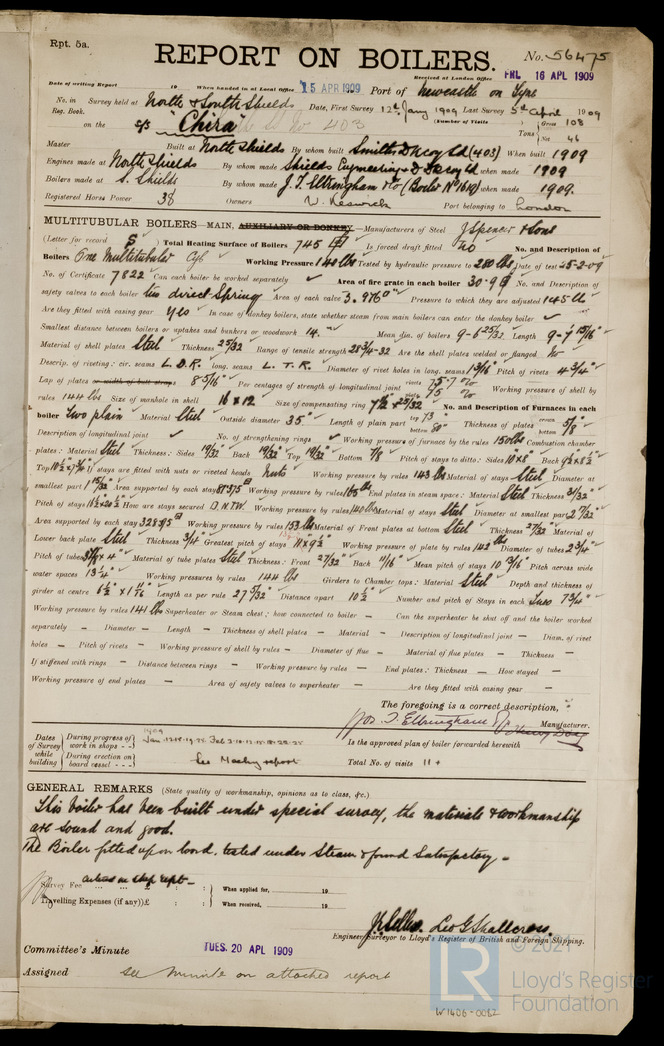 Rpt. 5a.
REPORT ON BOILERS.
No. 56475
Date of writing Report 19 When handed in at Local Office 15 APR 1909 Port of Newcastle on Tyne
Received at London Office FRI. 16 APL 1909
No. in Survey held at North & South Shields Date, First Survey 12th Jany 1909 Last Survey 5th April 1909
Reg. Book.
(Number of Visits
on the S/S "Chira" No 403
Tons Gross 108
Net 46
Master Built at North Shields By whom built Smiths Dk Coy Ld (403) When built 1909
Engines made at North Shields By whom made Shields Engineering & D Dk Coy Ld when made 1909
Boilers made at S. Shields By whom made J. T. Eltringham & Co (Boiler No 1619) when made 1909.
Registered Horse Power 38 Owners W. Keswick Port belonging to London
MULTITUBULAR BOILERS MAIN, AUXILIARY OR DONKEY.—Manufacturers of Steel J Spencer & Sons
(Letter for record S) Total Heating Surface of Boilers 745 Is forced draft fitted No No. and Description of
Boilers One Multitubular Cyl Working Pressure 140 lbs Tested by hydraulic pressure to 280 lbs Date of test 25-2-09
No. of Certificate 7822 Can each boiler be worked separately Area of fire grate in each boiler 30.9 No. and Description of
safety valves to each boiler two direct Spring Area of each valve 3.976 Pressure to which they are adjusted 145 lbs
Are they fitted with easing gear Yes In case of donkey boilers, state whether steam from main boilers can enter the donkey boiler
Smallest distance between boilers or uptakes and bunkers or woodwork 14" Mean dia. of boilers 9-6 25/32 Length 9-7 15/16
Material of shell plates Steel Thickness 25/32 Range of tensile strength 28 3/4-32 Are the shell plates welded or flanged No
Descrip. of riveting: cir. seams L.D.R. long. seams L.T.R. Diameter of rivet holes in long. seams 13/16 Pitch of rivets 4 3/4"
Lap of plates or width of butt straps 8 5/16" Per centages of strength of longitudinal joint rivets 75.7 % plate 75 % Working pressure of shell by
rules 144 lbs Size of manhole in shell 16 x 12 Size of compensating ring 7 1/2 x 25/32 No. and Description of Furnaces in each
boiler Two plain Material Steel Outside diameter 35" Length of plain part top 73" bottom 80" Thickness of plates crown bottom 5/8
Description of longitudinal joint No. of strengthening rings Working pressure of furnace by the rules 150 lbs Combustion chamber
plates: Material Steel Thickness: Sides 19/32 Back 19/32 Top 19/32 Bottom 7/8 Pitch of stays to ditto: Sides 10 x 8 Back 9 1/2 x 8 1/2
Top If stays are fitted with nuts or riveted heads Nuts Working pressure by rules 143 lbs Material of stays Steel Diameter at
smallest part 1 15/32 Area supported by each stay Working pressure by rules 165 lbs End plates in steam space: Material Steel Thickness 31/32
Pitch of stays How are stays secured D.N.T.W. Working pressure by rules 140 lbs Material of stays Steel Diameter at smallest part 2 7/32
Area supported by each stay Working pressure by rules 153 lbs Material of Front plates at bottom Steel Thickness 27/32 Material of
Lower back plate Steel Thickness 3/4 Greatest pitch of stays 11 x 9 1/2 Working pressure of plate by rules 142 lbs Diameter of tubes 2 3/4"
Pitch of tubes Material of tube plates Steel Thickness: Front 27/32 Back 11/16 Mean pitch of stays 10 13/16 Pitch across wide
water spaces 13 1/4" Working pressures by rules 144 lbs Girders to Chamber tops: Material Steel Depth and thickness of
girder at centre 6 1/2 x 1 1/16 Length as per rule 27 5/32 Distance apart 10 1/2 Number and pitch of Stays in each Two 7 3/4"
Working pressure by rules 141 lbs Superheater or Steam chest; how connected to boiler — Can the superheater be shut off and the boiler worked
separately — Diameter — Length — Thickness of shell plates — Material — Description of longitudinal joint — Diam. of rivet
holes — Pitch of rivets — Working pressure of shell by rules — Diameter of flue — Material of flue plates — Thickness —
If stiffened with rings — Distance between rings — Working pressure by rules — End plates: Thickness — How stayed —
Working pressure of end plates — Area of safety valves to superheater — Are they fitted with easing gear —
The foregoing is a correct description,
Jos. T. Eltringham Manufacturer.
Dates of Survey while building
During progress of work in shops - - 1909
During erection on board vessel - - - See Machy report
Is the approved plan of boiler forwarded herewith
Total No. of visits 11+
GENERAL REMARKS (State quality of workmanship, opinions as to class, &c.)
This boiler has been built under special survey, the materials & workmanship
are sound and good.
The Boiler fitted up on board, tested under Steam & found Satisfactory —
Survey Fee ... ... ... £ : : When applied for, 19
Travelling Expenses (if any) £ : : When received, 19
Leo G. Shallcross.
Engineer Surveyor to Lloyd's Register of British and Foreign Shipping.
Committee's Minute TUES. 20 APL 1909
Assigned see minute on attached report
© 2021
LR Lloyd's Register
Foundation
W1406-0082